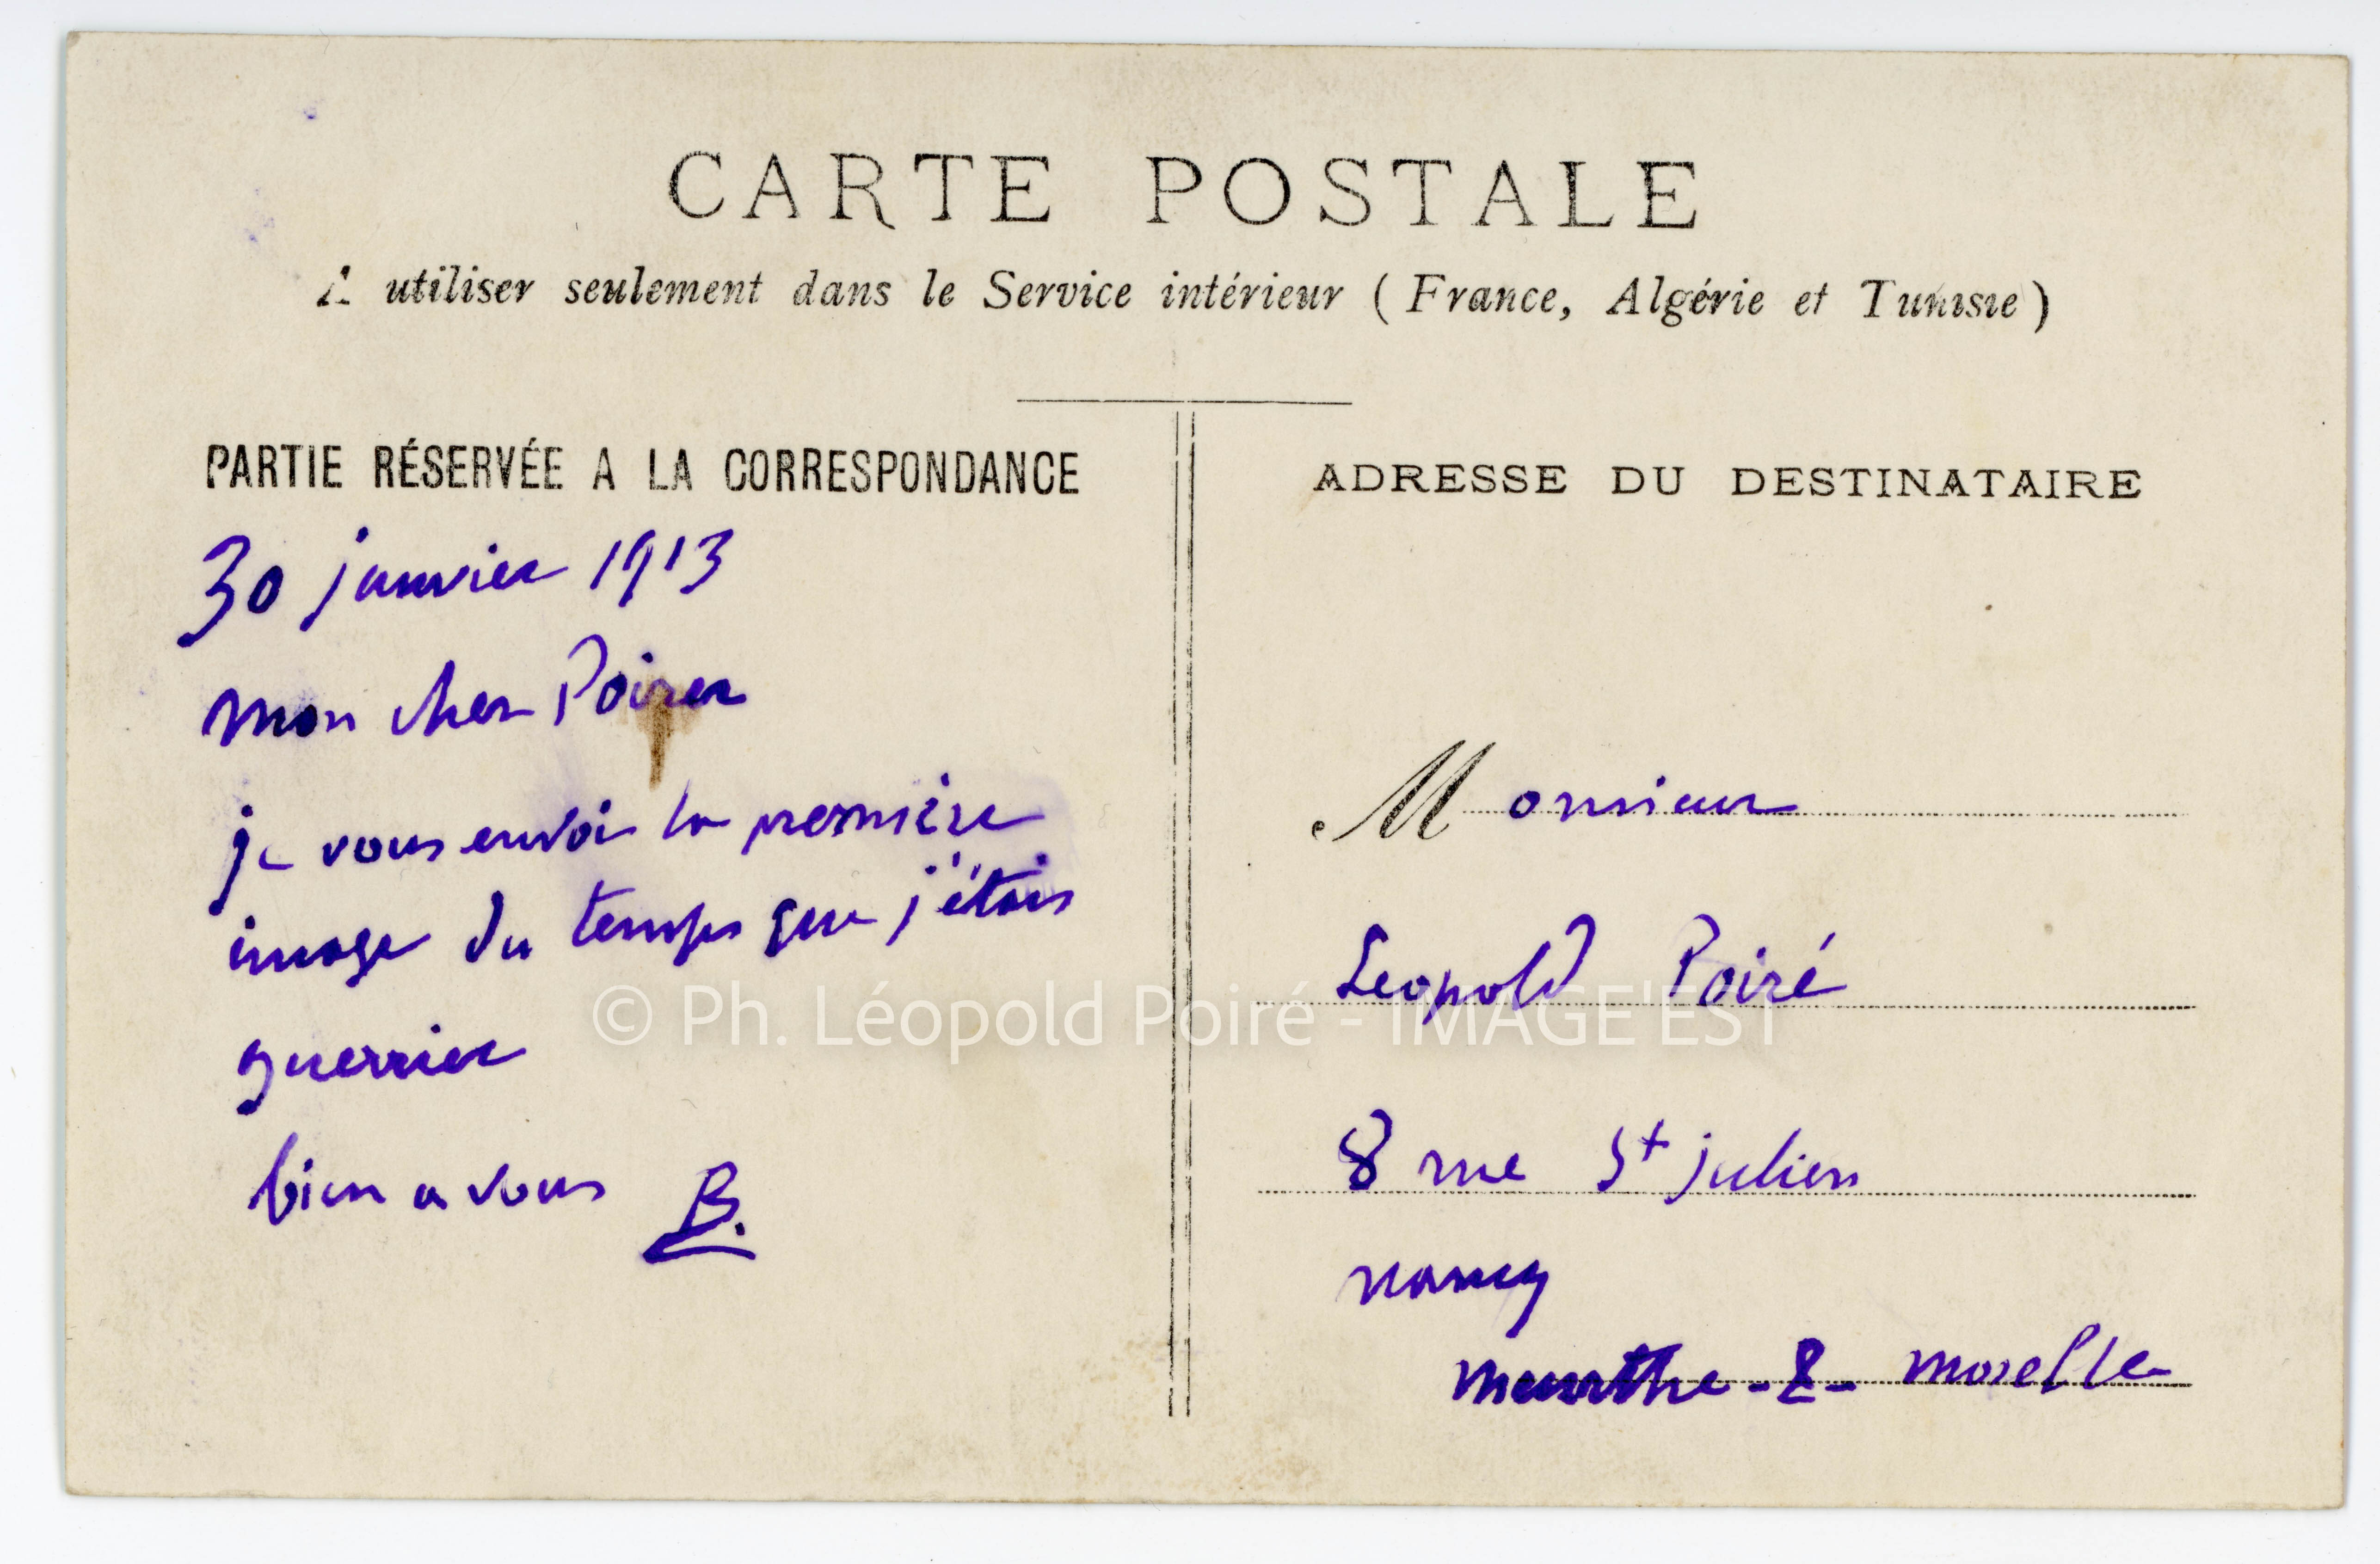 CARTE POSTALE
A utiliser seulement dans le Service intérieur (France, Algérie et Tunisie)
PARTIE RÉSERVÉE A LA CORRESPONDANCE
30 janvier 1913
mon cher Poirer
je vous envoi la première
image du temps que j'étais
guerrier
bien a vous B.
ADRESSE DU DESTINATAIRE
Monsieur
Leopold Poiré
8 rue St julien
nancy
meurthe-&-moselle
© Ph. Léopold Poiré - IMAGE'EST